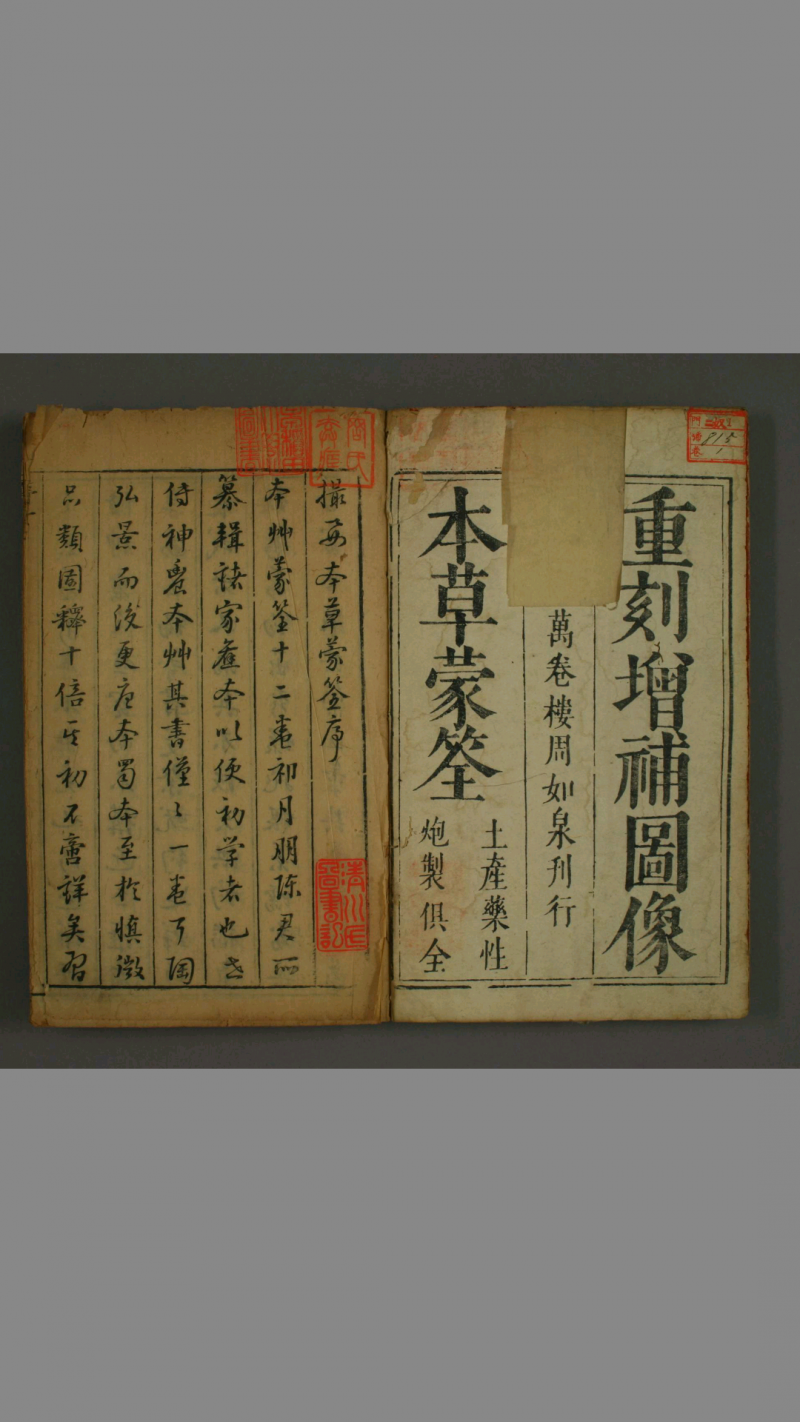 重刻增補圖像
萬卷樓周如泉刊行
本草蒙筌
土產藥性
炮製俱全
915
1
撮要本草蒙筌序
本艸蒙筌十二卷祁月朋陳君所
纂輯諸家舊本以便初学者也世
侍神農本艸其書僅〻一卷耳陶
弘景而後更唐本蜀本至於慎微
品類圖釋十倍其初不啻詳矣
清川氏圖書記